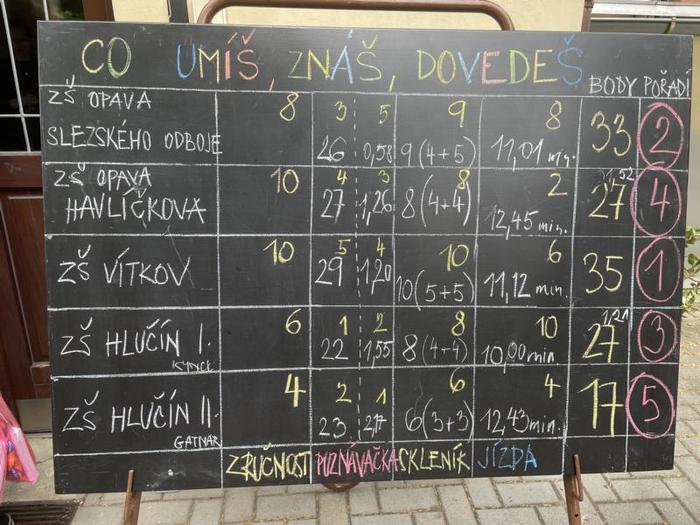 CO UMÍŠ, ZNÁŠ, DOVEDEŠ BODY POŘADÍ
ZŠ OPAVA 8 3 5 9 8
SLEZSKÉHO ODBOJE 26 0,58 9(4+5) 11,01 min. 33 2
ZŠ OPAVA 10 4 3 8 2 1,52
HAVLÍČKOVA 27 1,26 8(4+4) 12,45 min. 27 4
10 5 4 10 6
ZŠ VÍTKOV 29 1,20 10(5+5) 11,12 min. 35 1
6 1 2 8 10 1,21
ZŠ HLUČÍN I. 22 1,55 8(4+4) 10,00 min 27 3
KYNCL
4 2 1 6 4
ZŠ HLUČÍN II. 23 2,17 6(3+3) 12,43 min. 17 5
GATNAR
ZRUČNOST POZNÁVAČKA SKLENÍK JÍZDA